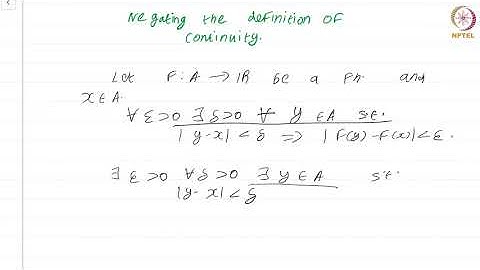 Negating the definition of
continuity.
NPTEL
Let F : A → IR be a Fn. and
x ∈ A.
∀ ε>0 ∃ δ>0 ∀ y ∈ A s.t.
|y-x| < δ => |F(y)-F(x)|<ε.
∃ ε>0 ∀ δ>0 ∃ y ∈ A s.t.
|y-x| < δ